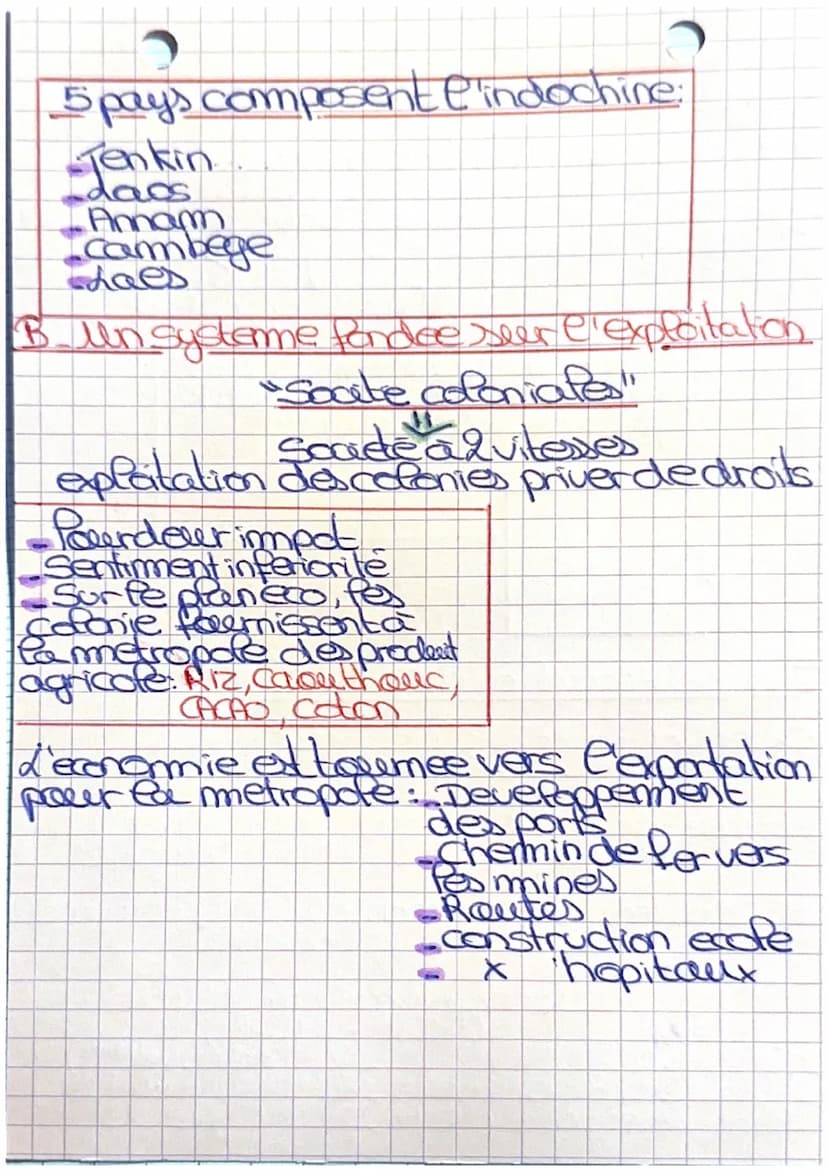 5 pays composent l'indochine:
- Tonkin
- Laos
- Annam
- Camboge
- Laos
B- Un systeme fondee sur l'exploitation
"Societe coloniales"
⇓
Société à 2 vitesses
exploitation des colonies priver de droits
- Lourdeur impot
- Sentiment inferiorité
- Sur le plan eco, les
colonie fournissent à
la metropole des produit
agricole: RIZ, caouthouc,
CACAO, coton
L'economie est tournee vers l'exportation
pour la metropole: - Developpement
des ports
- Chemin de fer vers
les mines
- Routes
- construction ecole
- x hopitaux